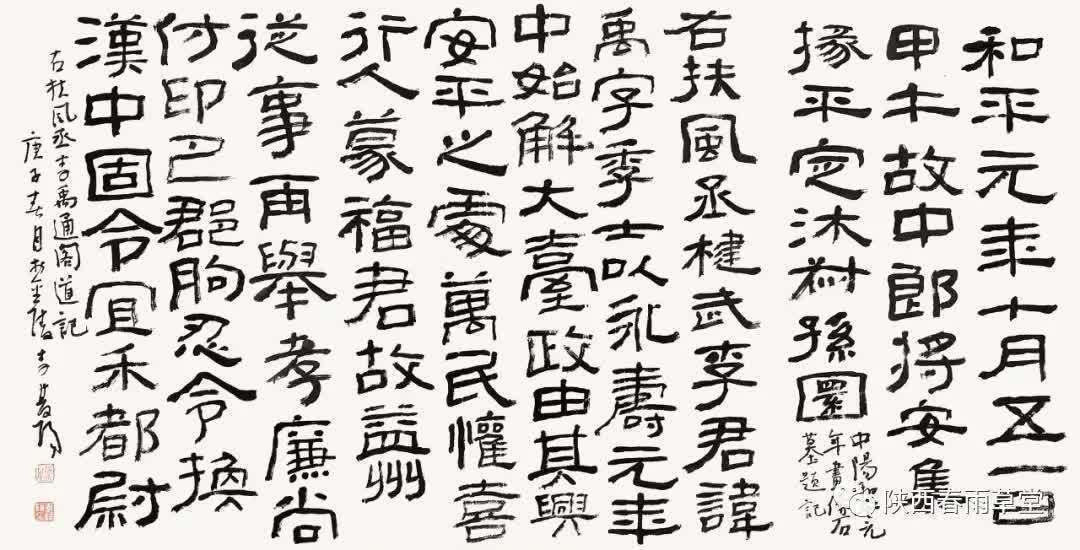 和平元年十月五日
甲午故中郎將安集
掾平定沐叔孫園
中陽和平元
年畫像石
墓題記
右扶風丞楗武李君諱
禹字季士以永壽元年
中始解大臺政由其興
安平之處萬民懽喜
行人蒙福君故益州
從事再舉孝廉尚
付印巴郡朐忍令換
漢中固令宜禾都尉
右扶風丞李禹通閣道記
庚子春月於金陵李
陕西春雨草堂